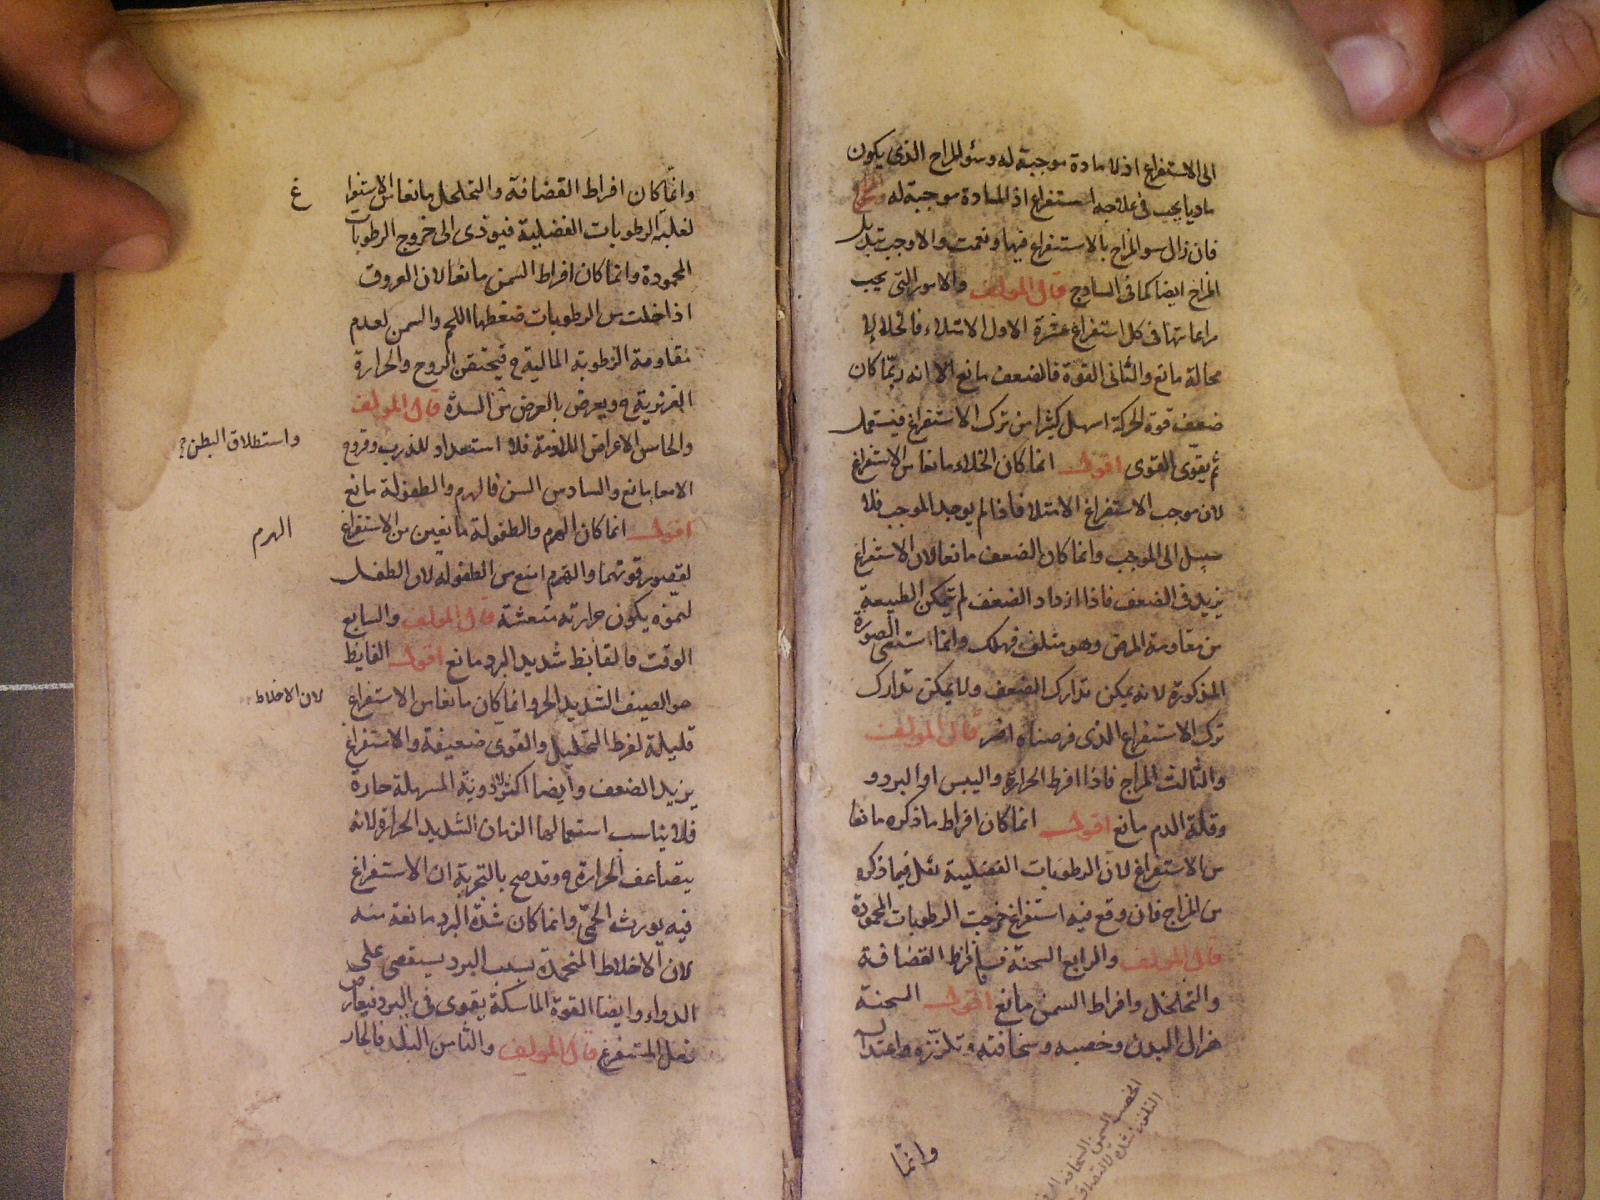 الى الاستفراغ اذ لا مادة موجبة له وسؤ المزاج الذى يكون
ماديا يجب فى علاجه استفراغ اذ المادة موجبة له
فان زال سو المزاج بالاستفراغ فبها ونعمت والا وجب تبديل
المزاج ايضا كما فى الساذج قال المولف والامور التى يجب
مراعاتها فى كل استفراغ عشرة الاول الامتلاء فالخلا لا
محالة مانع والثانى القوة فالضعف مانع الا انه ربّما كان
ضعف قوة الحركة اسهل كثيرا من ترك الاستفراغ فيستعمل
ثم يقوى القوى اقول انما كان الخلاء مانعا من الاستفراغ
لان موجب الاستفراغ الامتلا فاذا لم يوجد الموجب فلا
سبيل الى الموجب وانما كان الضعف مانعا لان الاستفراغ
يزيد فى الضعف فاذا ازداد الضعف لم يتمكن الطبيعة
من مقاومة المرض وهو متلف فهلك وانما استثنى الصورة
المذكورة لانه يمكن تدارك الضعف ولا يمكن تدارك
ترك الاستفراغ الذى فرضناه اضر قال المولف
والثالث المزاج فاذا افرط الحرارة واليبس او البرد و
وقلة الدم مانع اقول انما كان افراط ما ذكره مانعا
من الاستفراغ لان الرطوبات الفضلية تقل فيما ذكره
من المزاج فان وقع فيه استفراغ خرجت الرطوبات المحمودة
قال المولف والرابع السحنة فـافراط القضافة
والتخلخل وافراط السمن مانع اقول السحنة
هزال البدن وخصبه وسخافته وتلززه واعتداله
وانما
وانّما كان افراط القضافة والتخلخل مانعا من الاستفرا
غ
لغلبة الرطوبات الفضلية فيؤدى الى خروج الرطوبات
المحمودة وانما كان افراط السمن مانعا لان العروق
اذا خلت من الرطوبات ضغطها اللحم والسمن لعدم
مقاومة الرطوبة المالية فيختنق الروح والحرارة
الغريزية ويعرض بالعرض من السدة قال المولف
والخامس الاعراض اللازمة فلا استعداد للذرب وقروح
واستطلاق البطن
الامعا مانع والسادس السن فالهرم والطفولة مانع
اقول انما كان الهرم والطفولة مانعين من الاستفراغ
الهرم
لقصور قوتهما والهرم امنع من الطفولة لان الطفل
لنموه يكون حرارته منتعشة قال المولف والسابع
الوقت فالقايظ شديد البرد مانع اقول القايظ
هو الصيف الشديد الحر وانما كان مانعا من الاستفراغ
لان الاخلاط
قليلة لفرط التحليل والقوى ضعيفة والاستفراغ
يزيد الضعف وايضا اكثر الادوية المسهلة حارة
فلا يناسب استعمالها الزمان الشديد الحرارة لانه
يتضاعف الحرارة وقد صح بالتجربة ان الاستفراغ
فيه يورث الحمّى وانما كان شدة البرد مانعة منه
لان الاخلاط المنجمدة بسبب البرد يستعصى على
الدواء وايضا القوة الماسكة يقوى فى البرد فيعارض
فعل المستفرغ قال المولف والثامن البلد فالحار